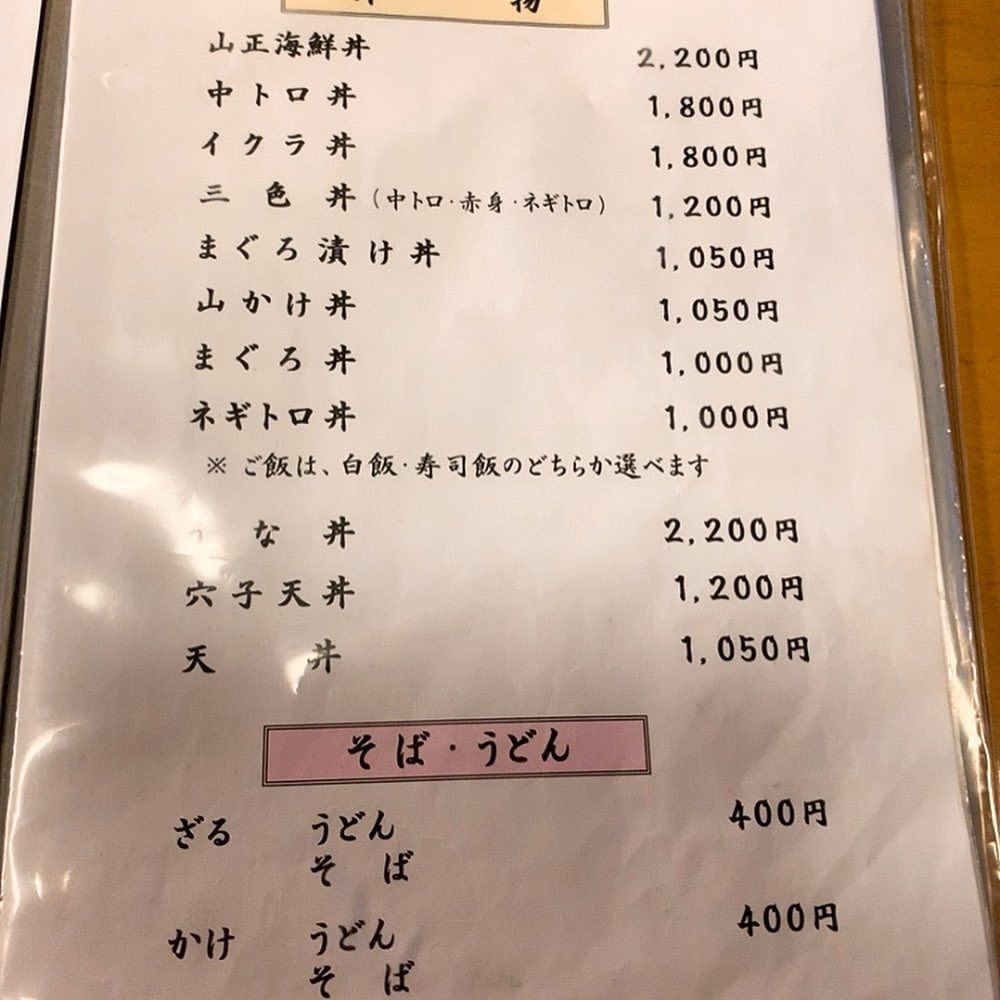 物
山正海鮮丼 2,200円
中トロ丼 1,800円
イクラ丼 1,800円
三色丼（中トロ・赤身・ネギトロ） 1,200円
まぐろ漬け丼 1,050円
山かけ丼 1,050円
まぐろ丼 1,000円
ネギトロ丼 1,000円
※ ご飯は、白飯・寿司飯のどちらか選べます
うな丼 2,200円
穴子天丼 1,200円
天丼 1,050円
そば・うどん
ざる うどん 400円
そば
かけ うどん 400円
そば